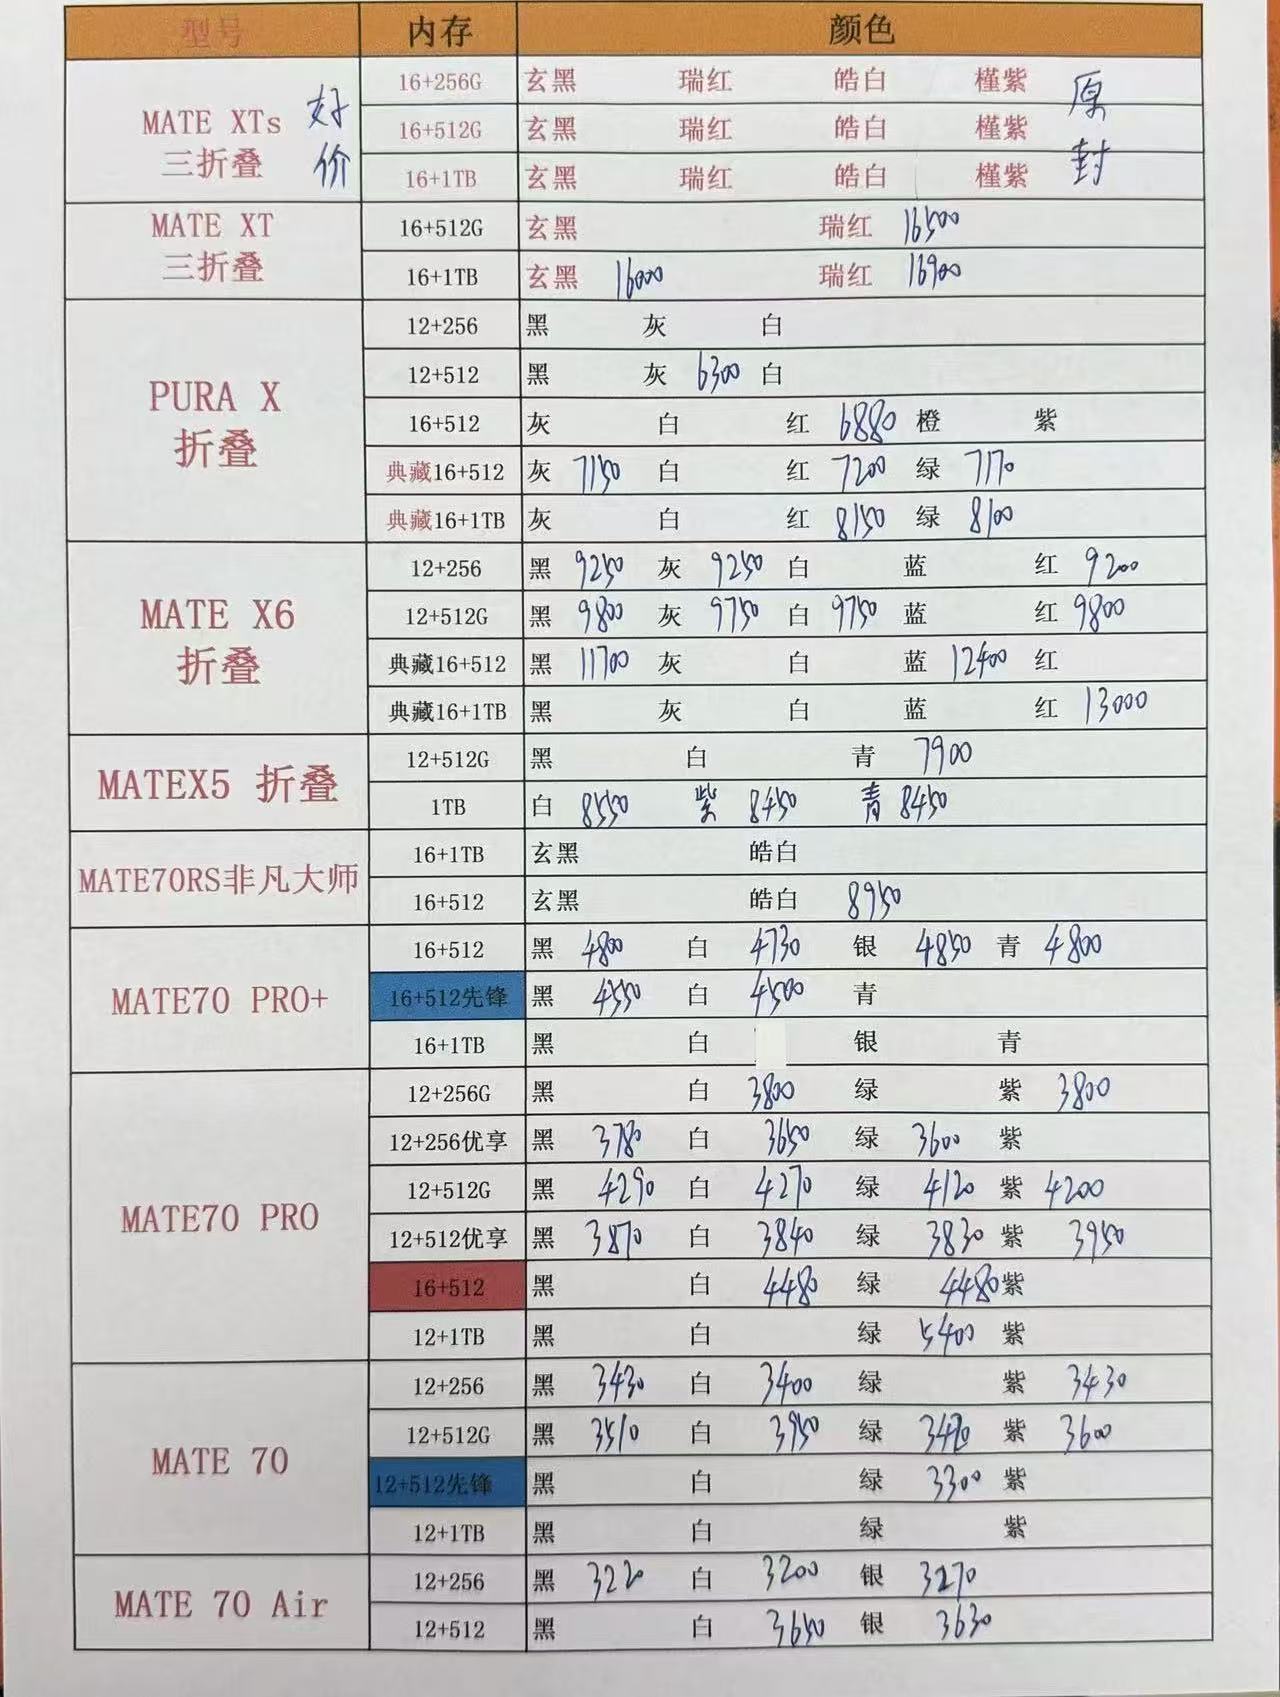 型号 内存 颜色
MATE XTs 三折叠 好价 原封
16+256G 玄黑 瑞红 皓白 槿紫
16+512G 玄黑 瑞红 皓白 槿紫
16+1TB 玄黑 瑞红 皓白 槿紫
MATE XT 三折叠
16+512G 玄黑 瑞红 16500
16+1TB 玄黑 16000 瑞红 16900
PURA X 折叠
12+256 黑 灰 白
12+512 黑 灰 6300 白
16+512 灰 白 红 6880 橙 紫
典藏16+512 灰 7150 白 红 7200 绿 7170
典藏16+1TB 灰 白 红 8150 绿 8100
MATE X6 折叠
12+256 黑 9250 灰 9250 白 蓝 红 9200
12+512G 黑 9800 灰 9750 白 9750 蓝 红 9800
典藏16+512 黑 11700 灰 白 蓝 12400 红
典藏16+1TB 黑 灰 白 蓝 红 13000
MATEX5 折叠
12+512G 黑 白 青 7900
1TB 白 8550 紫 8450 青 8450
MATE70RS非凡大师
16+1TB 玄黑 皓白
16+512 玄黑 皓白 8950
MATE70 PRO+
16+512 黑 4800 白 4730 银 4850 青 4800
16+512先锋 黑 4550 白 4500 青
16+1TB 黑 白 银 青
MATE70 PRO
12+256G 黑 白 3800 绿 紫 3800
12+256优享 黑 3780 白 3650 绿 3600 紫
12+512G 黑 4290 白 4270 绿 4120 紫 4200
12+512优享 黑 3870 白 3840 绿 3830 紫 3950
16+512 黑 白 4480 绿 4480 紫
12+1TB 黑 白 绿 5400 紫
MATE 70
12+256 黑 3430 白 3400 绿 紫 3430
12+512G 黑 3510 白 3950 绿 紫 3600
12+512先锋 黑 白 绿 3300 紫
12+1TB 黑 白 绿 紫
MATE 70 Air
12+256 黑 3220 白 3200 银 3270
12+512 黑 白 3650 银 3630